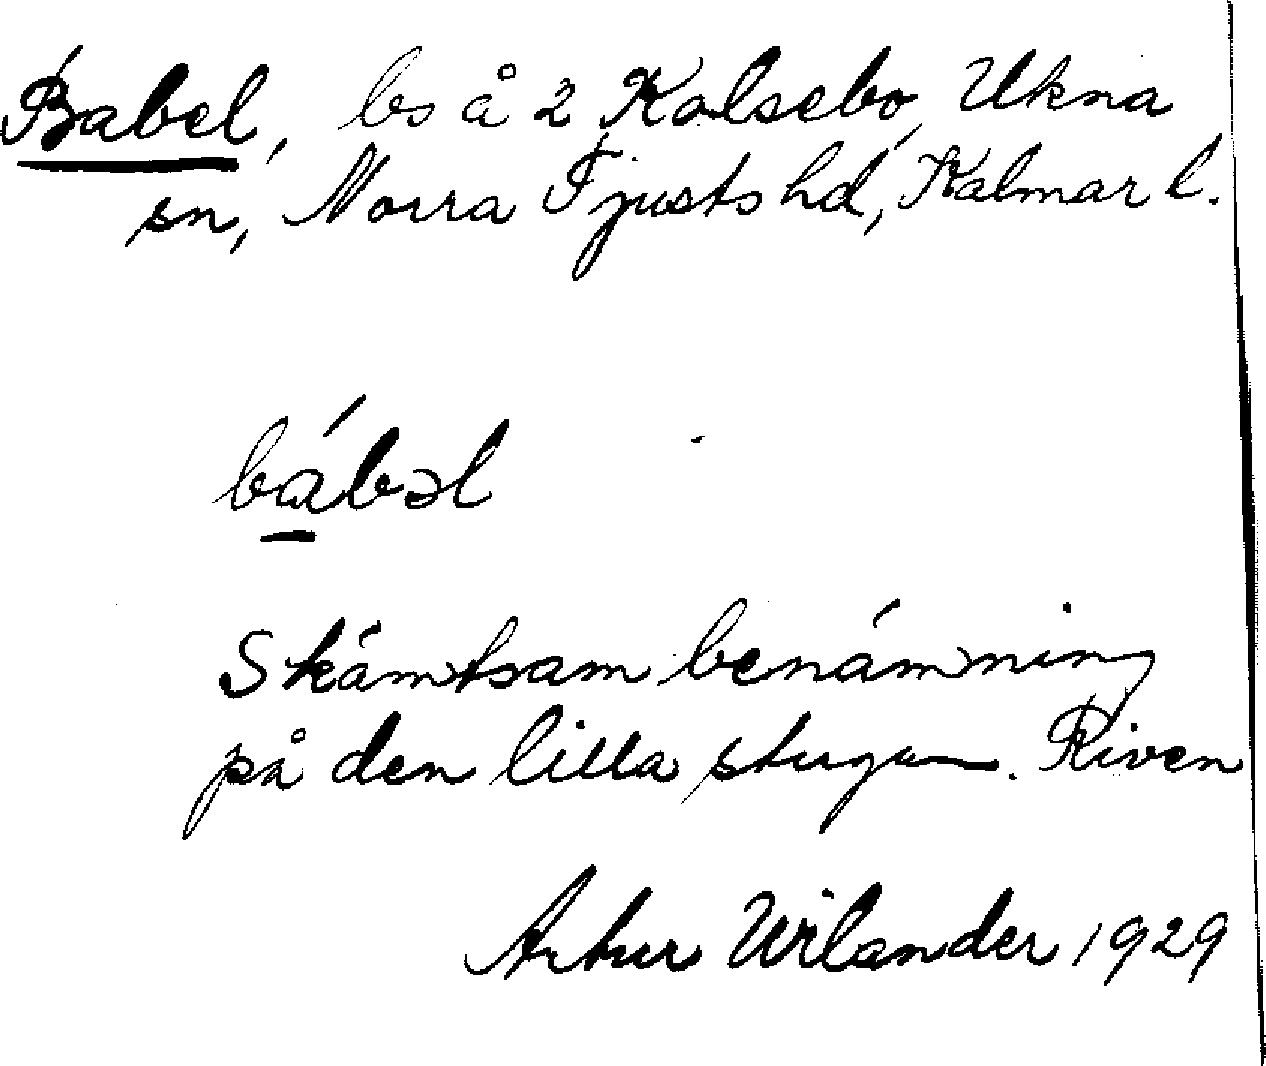 Babel, bs å 2 Kolsebo, Ukna
sn, Norra Tjusts hd, Kalmar l.
bábəl
Skämtsam benämning
på den lilla stugan. Riven
Artur Wilander 1929